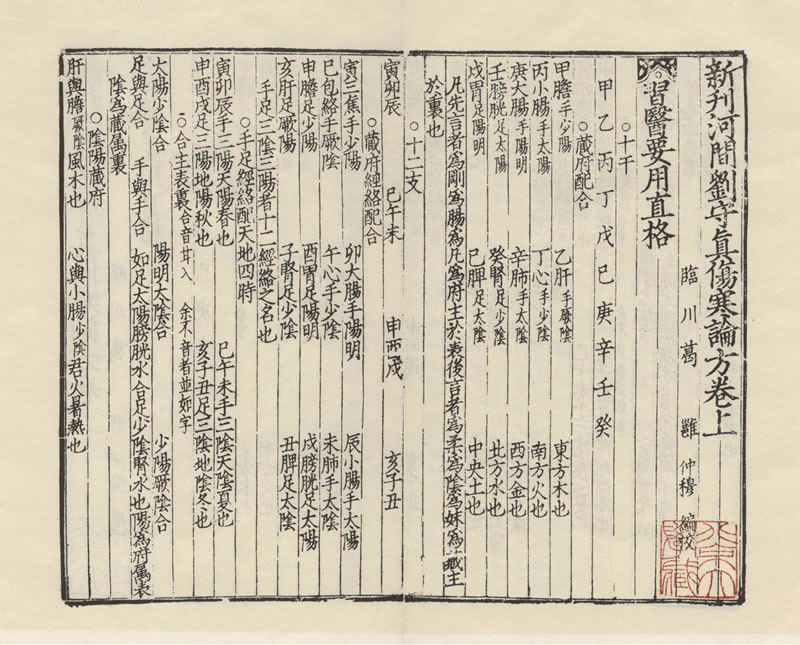 新刊河間劉守真傷寒論方卷上
臨川葛 雝 仲穆 編校
習醫要用直格
○十干
甲乙丙丁戊己庚辛壬癸
○藏府配合
甲膽手少陽 乙肝手厥陰 東方木也
丙小腸手太陽 丁心手少陰 南方火也
庚大腸手陽明 辛肺手太陰 西方金也
壬膀胱足太陽 癸腎足少陰 北方水也
戊胃足陽明 己脾足太陰 中央土也
凡先言者為剛為腸為凡為府主於表後言者為柔為陰為妹為藏主
於裏也
○十二支
寅卯辰 巳午未 申酉戌 亥子丑
○藏府經絡配合
寅三焦手少陽 卯大腸手陽明 辰小腸手太陽
巳包絡手厥陰 午心手少陰 未肺手太陰
申膽足少陽 酉胃足陽明 戌膀胱足太陽
亥肝足厥陽 子腎足少陰 丑脾足太陰
手足三陰三陽者十二經絡之名也
○手足經絡配天地四時
寅卯辰手三陽天陽春也 巳午未手三陰天陰夏也
申酉戌足三陽地陽秋也 亥子丑足三陰地陰冬也
○合主表裏合音廿入 余不音者並如字
太陽少陰合 陽明太陰合 少陽厥陰合
足與足合 手與手合 如足太陽膀胱水合足少陰腎水也陽為府屬表
陰為藏屬裏
○陰陽藏府
肝與膽厥陰風木也 心與小腸少陰君火暑熱也